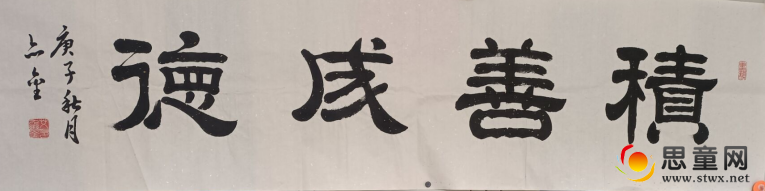 積善成徳
庚子秋月
思童网
www.stwx.net